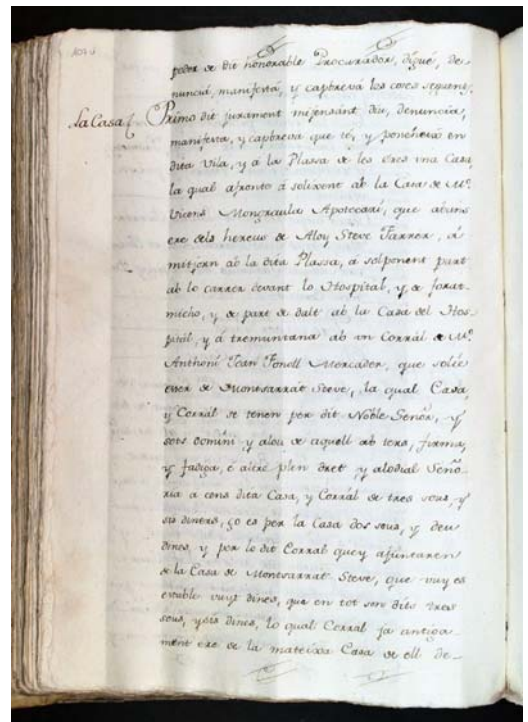 107v
poder de dit honorable Procurador, digué, de-
nunciá, manifestá, y capbrevá les coses seguents
la Casa
Primo dit jurament mijensánt diu, denuncia,
manifesta, y capbreva que té, y posseheix en
dita Vila, y á la Plassa de les eres una Casa
la qual afronta á solixent ab la Casa de Mº
Vicens Mongraula Apotecari, que abans
ere dels hereus de Aloy Steve Farrer, á
mitjorn ab la dita Plassa, á solponent part
ab lo carrer devant lo Hospital, y de
y de part de dalt ab la Casa del Hos-
pitál, y á tremuntana ab un Corrál de Mº
Anthoni Joan Fonoll Mercader, que solie
esser de Montsarrat Steve, la qual Casa,
y Corrál se tenen per dit Noble Señor, y
sots domini y alou de aquell ab tersa, firma,
y fadiga, é altre plen dret y alodial Seño-
ria á cens dita Casa, y Corrál de tres sous, y
sis diners, ço es per la Casa dos sous, y deu
dines, y per lo dit Corral quey ajuntaren
de la Casa de Montsarrat Steve, que vuy es
estable vuyt dines, que en tot son dits tres
sous, y sis dines, lo qual Corral ja antiga-
ment ere de la mateixa Casa de ell de-